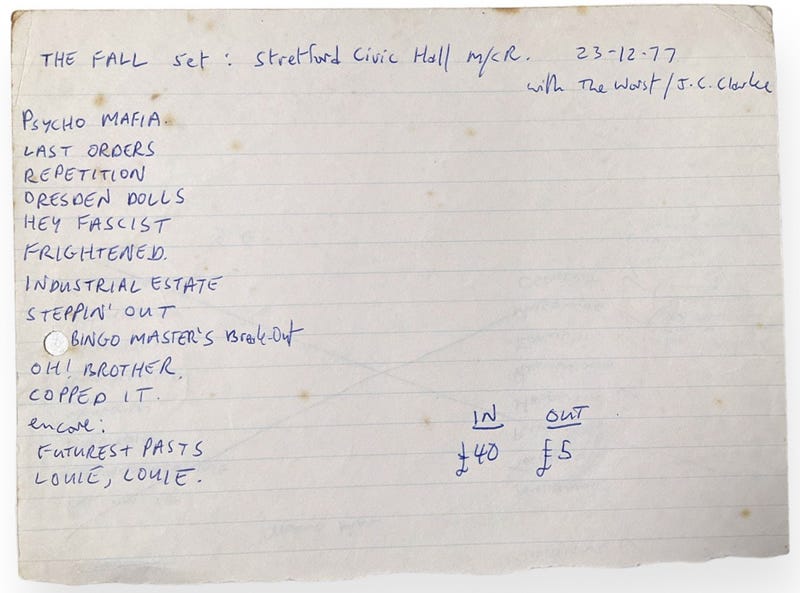 THE FALL set : Stretford Civic Hall M/cR. 23-12-77
with The Worst / J.C. Clarke
PSYCHO MAFIA.
LAST ORDERS
REPETITION
DRESDEN DOLLS
HEY FASCIST
FRIGHTENED.
INDUSTRIAL ESTATE
STEPPIN' OUT
BINGO MASTER'S Break-Out
OH! BROTHER.
COPPED IT.
encore:
FUTURES + PASTS
LOUIE, LOUIE.
IN OUT
£40 £5